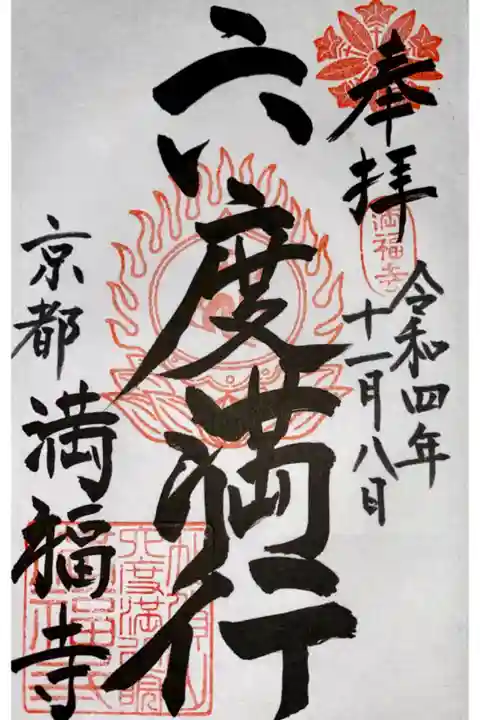 奉拝
満福寺
令和四年
十一月八日
六度満行
京都 満福寺